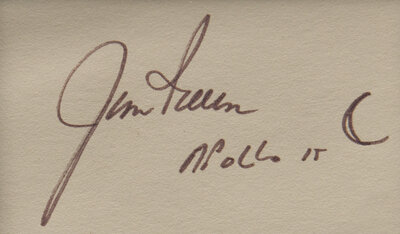 Jim Irwin
Apollo 15